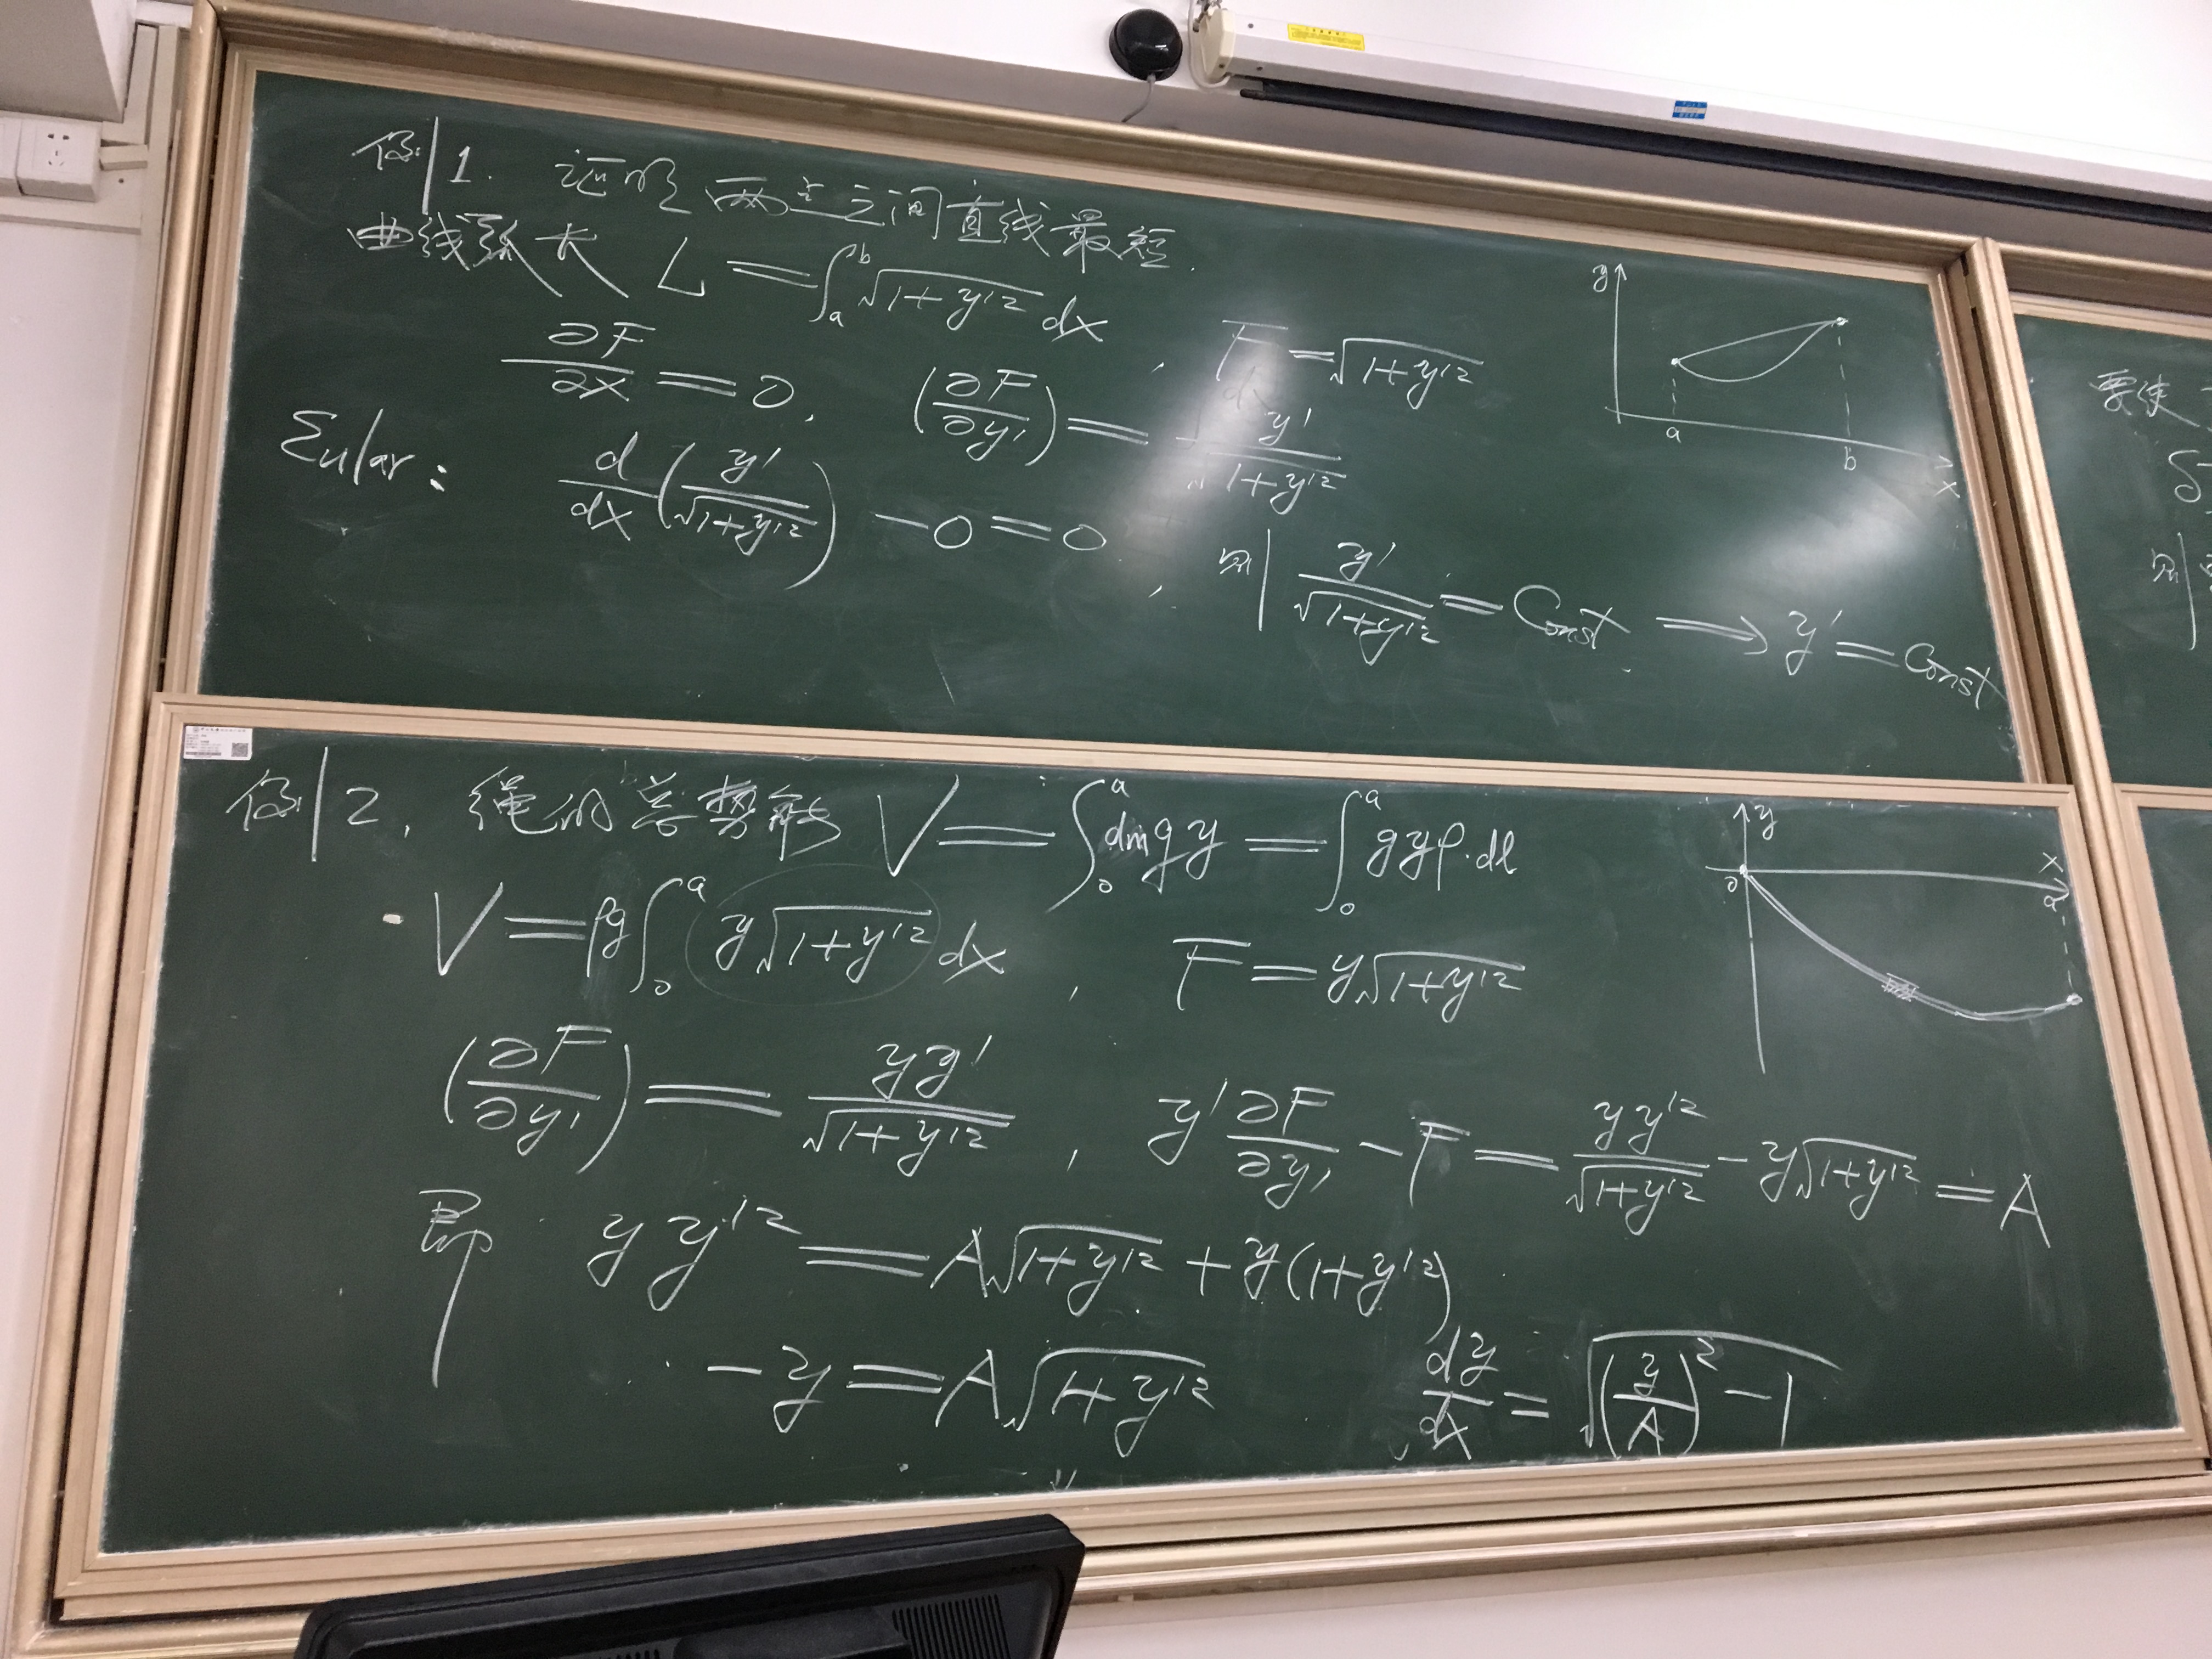 例1. 证明两点之间直线最短.
曲线弧长 L = ∫_a^b √(1+y'²) dx , F = √(1+y'²)
∂F/∂x = 0, (∂F/∂y') = y'/√(1+y'²)
Eular: d/dx (y'/√(1+y'²)) - 0 = 0 , 则 y'/√(1+y'²) = Const. ⟹ y' = Const
y
a
b
x
例2, 绳的总势能 V = ∫_0^a dm g y = ∫_0^a g y ρ·dl
V = ρg ∫_0^a y√(1+y'²) dx , F = y√(1+y'²)
(∂F/∂y') = yy'/√(1+y'²) , y' ∂F/∂y' - F = yy'²/√(1+y'²) - y√(1+y'²) = A
即 yy'² = A√(1+y'²) + y(1+y'²)
-y = A√(1+y'²) dy/dx = √((y/A)² - 1)
y
0
x
a
要使
δ
则